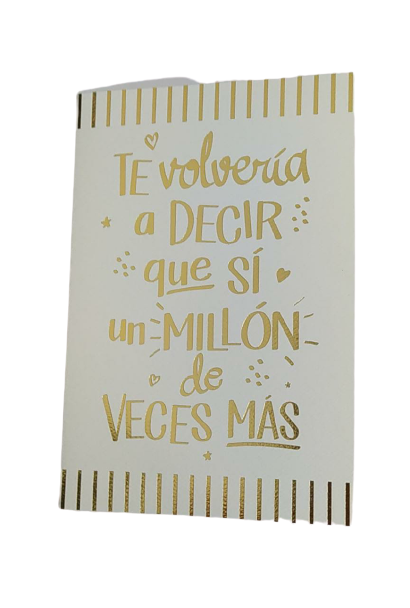 TE volvería
a DECIR
que SÍ
un MILLÓN
de
VECES MÁS